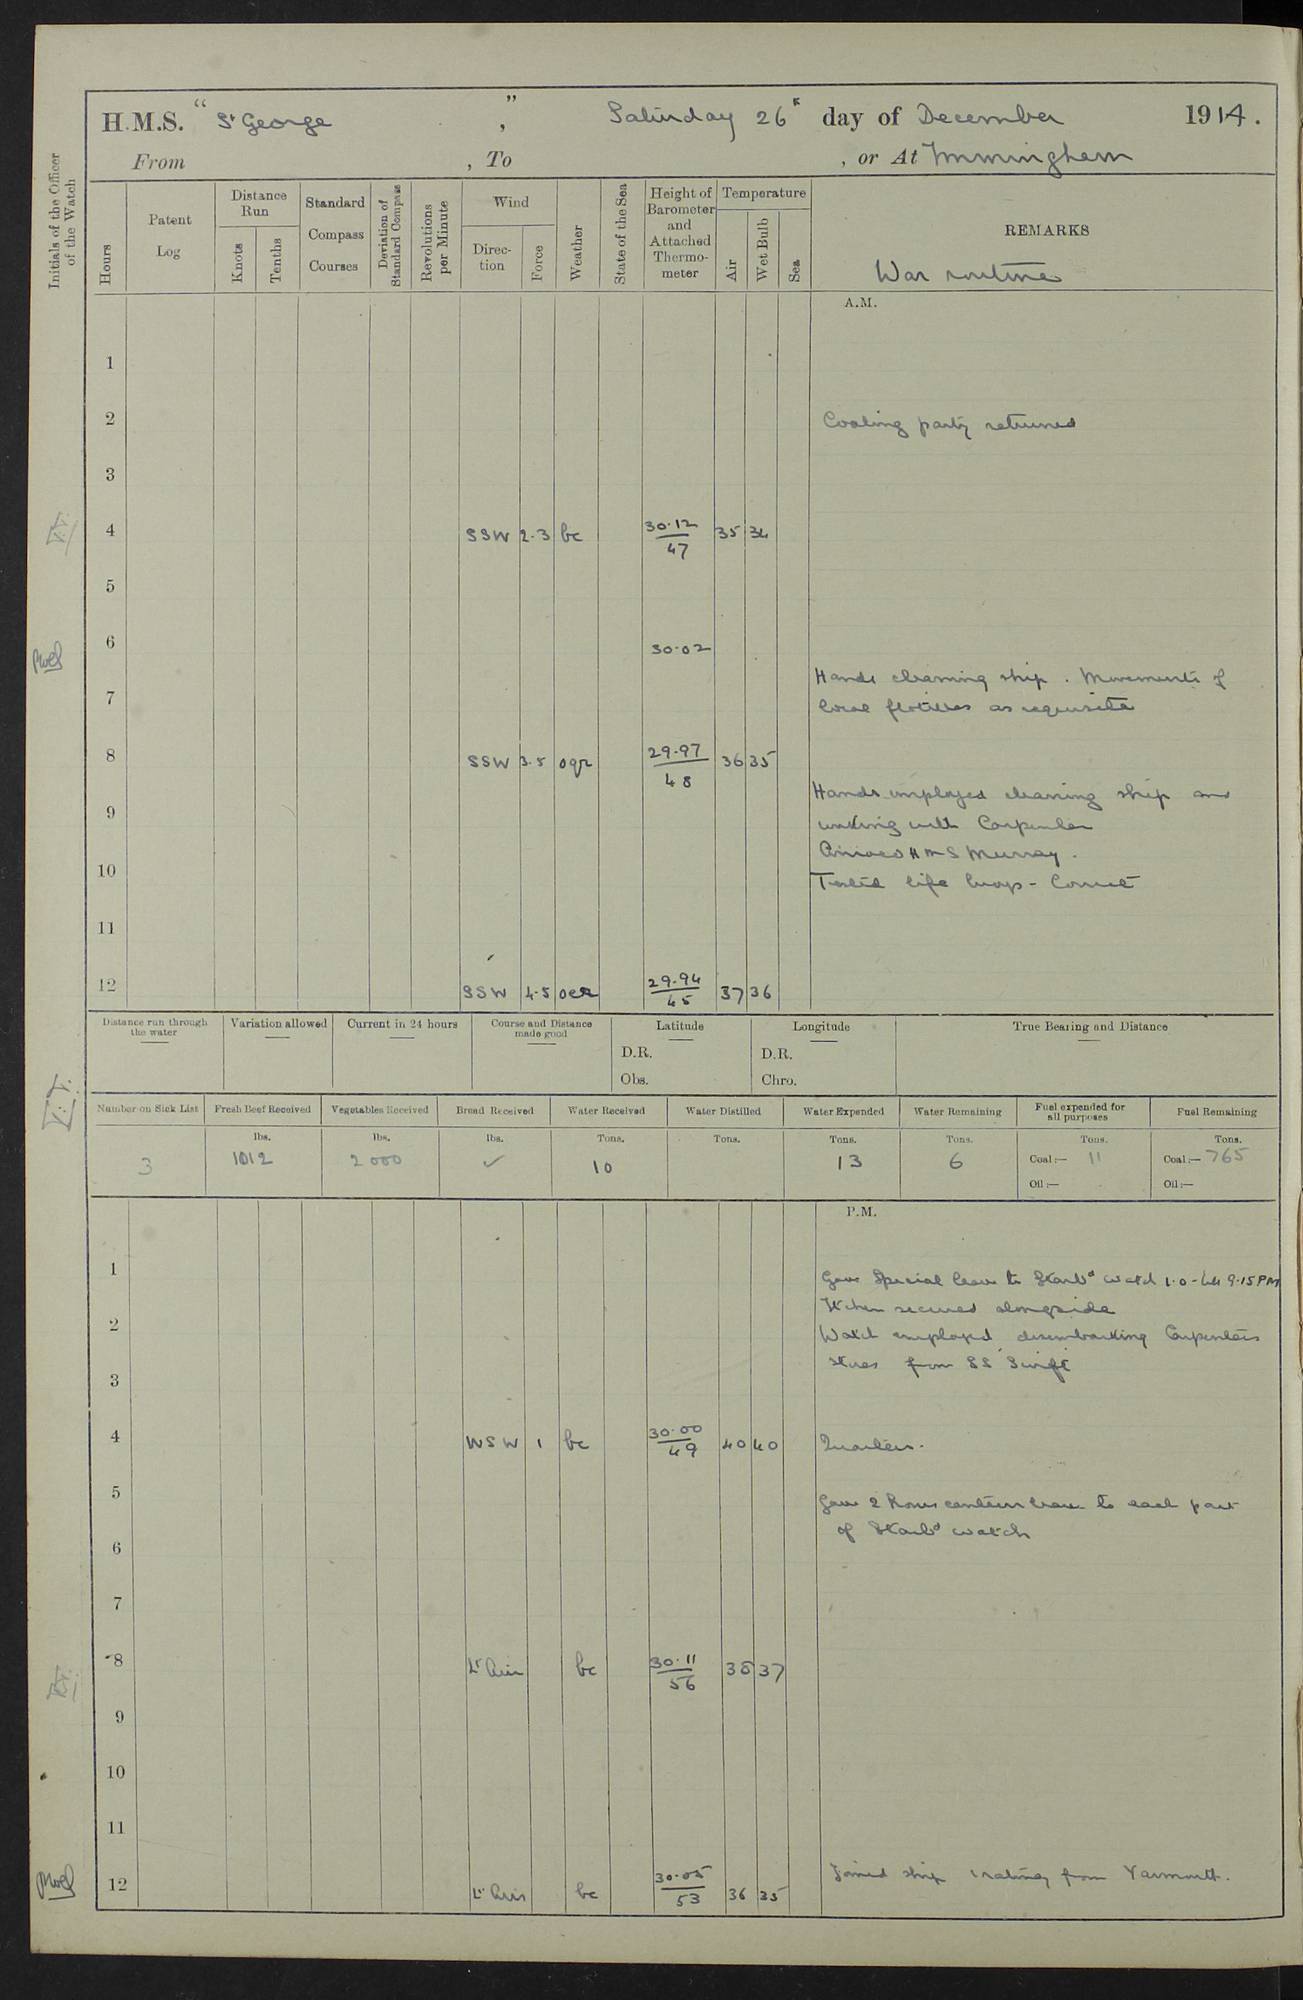 H.M.S. "St George", Saturday 26th day of December 1914.
From , To , or At Immingham
Initials of the Officer of the Watch
Hours
Patent Log
Distance Run
Knots
Tenths
Standard Compass Courses
Deviation of Standard Compass
Revolutions per Minute
Wind
Direction
Force
Weather
State of the Sea
Height of Barometer and Attached Thermometer
Temperature
Air
Wet Bulb
Sea
REMARKS
War routine
A.M.
1
2 Coaling party returned
3
4 SSW 2.3 bc 30.12/47 35 34
5
6 30.02
Hands cleaning ship. Movements of
7
local flotillas as requisite
8 SSW 3.5 oqr 29.97/48 36 35
Hands employed cleaning ship and
9
working with Carpenter
Arrived HMS Murray.
10
Tested life buoys - Correct
11
12 SSW 4.5 oer 29.94/45 37 36
Distance run through the water
Variation allowed
Current in 24 hours
Course and Distance made good
Latitude
D.R.
Obs.
Longitude
D.R.
Chro.
True Bearing and Distance
Number on Sick List
Fresh Beef Received
Vegetables Received
Bread Received
Water Received
Water Distilled
Water Expended
Water Remaining
Fuel expended for all purposes
Fuel Remaining
lbs. lbs. lbs. Tons. Tons. Tons. Tons. Tons. Tons.
3 1012 2000 ✓ 10 13 6 Coal:— 11 Coal:— 765
Oil:— Oil:—
P.M.
1 Gave Special leave to Starbd watch 1.0 - till 9.15 PM
Itchen secured alongside
2
Watch employed disembarking Carpenters
stores from SS Swift
3
4 WSW 1 bc 30.00/49 40 40 Quarters.
5 Gave 2 hours canteen leave to each part
of Starbd watch
6
7
8 Lt Airs bc 30.11/56 38 37
9
10
11
12 Lt Airs bc 30.05/53 36 35 Joined ship 1 rating from Yarmouth.